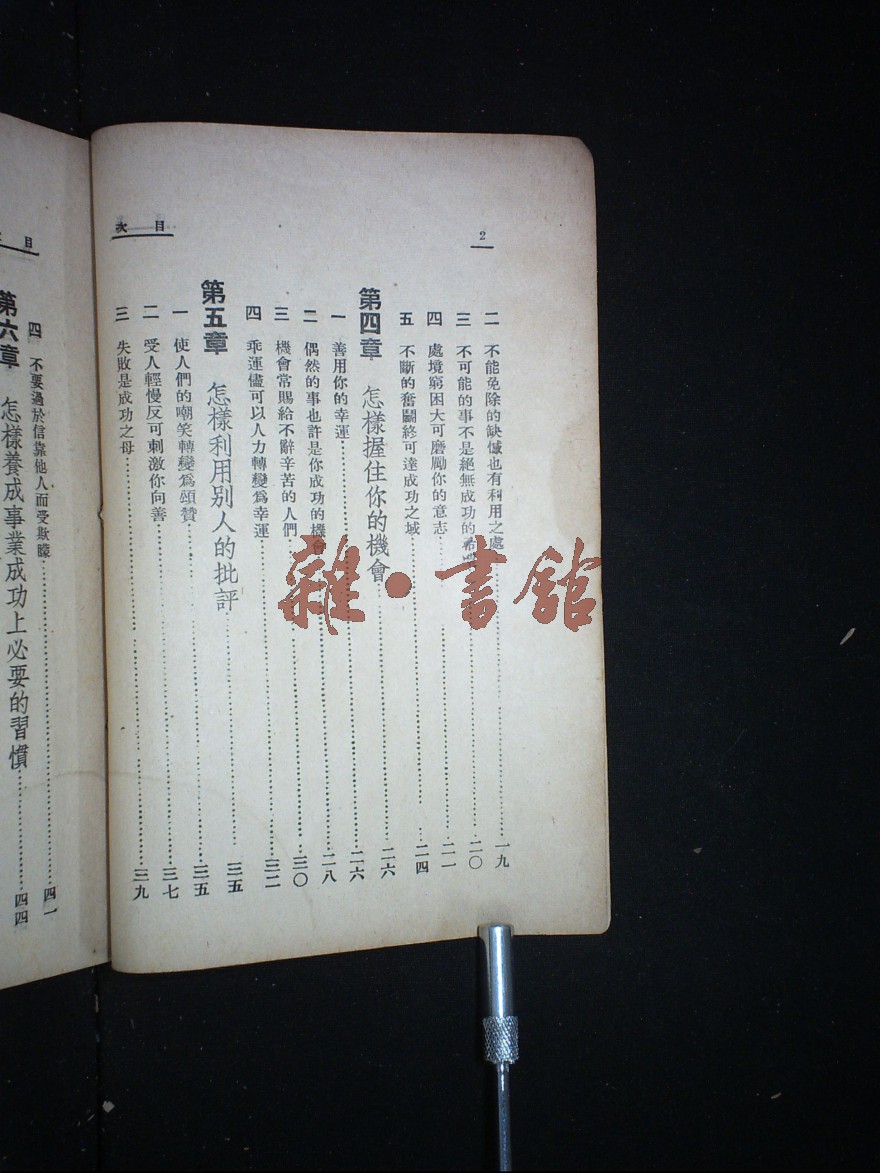 2
目次
二 不能免除的缺憾也有利用之處 一九
三 不可能的事不是絕無成功的希望 二〇
四 處境窮困大可磨勵你的意志 二一
五 不斷的奮鬭終可達成功之域 二四
第四章 怎樣握住你的機會 二六
一 善用你的幸運 二六
二 偶然的事也許是你成功的機會 二八
三 機會常賜給不辭辛苦的人們 三〇
四 乖運儘可以人力轉變爲幸運 三二
第五章 怎樣利用別人的批評 三五
一 使人們的嘲笑轉變爲頌贊 三五
二 受人輕慢反可刺激你向善 三七
三 失敗是成功之母 三九
目
四 不要過於信靠他人而受欺矇 四一
第六章 怎樣養成事業成功上必要的習慣 四四
雜·書館